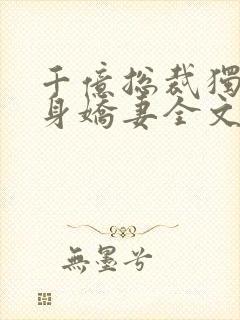 千億總裁獨
身嬌妻全文
無墨兮